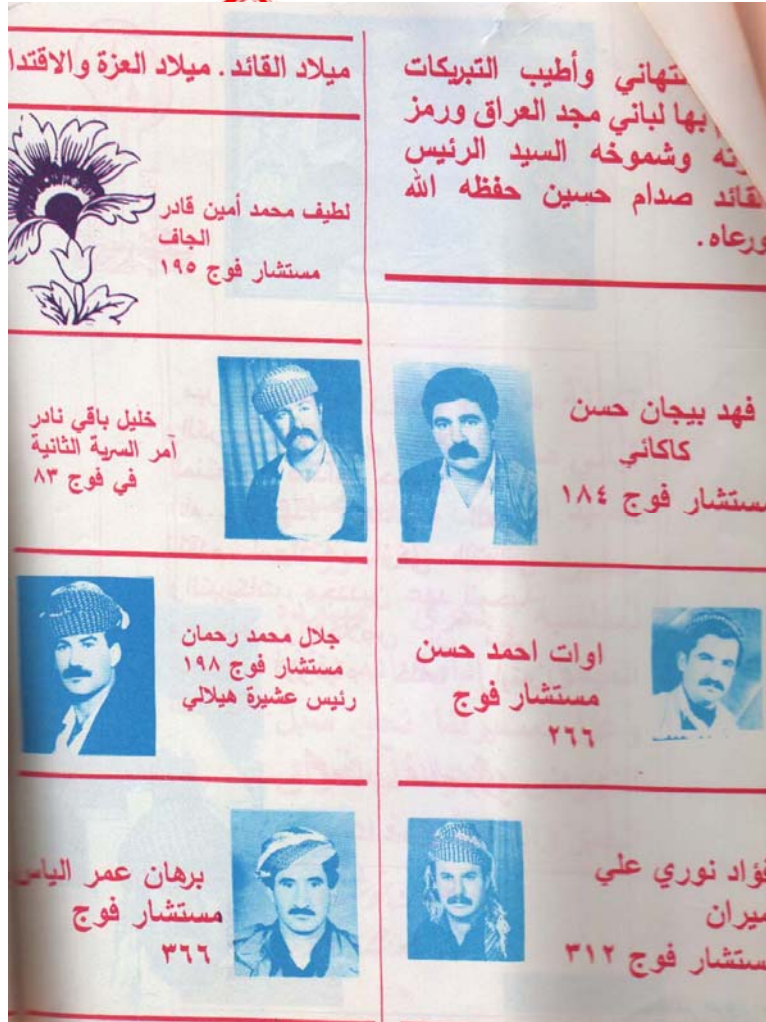 تهاني وأطيب التبريكات
بها لباني مجد العراق ورمز
وشموخه السيد الرئيس
القائد صدام حسين حفظه الله
ورعاه .
فهد بيجان حسن
كاكائي
مستشار فوج ١٨٤
اوات احمد حسن
مستشار فوج
٢٦٦
فؤاد نوري علي
ميران
مستشار فوج ٣١٢
ميلاد القائد . ميلاد العزة والاقتدا
لطيف محمد أمين قادر
الجاف
مستشار فوج ١٩٥
خليل باقي نادر
آمر السرية الثانية
في فوج ٨٣
جلال محمد رحمان
مستشار فوج ١٩٨
رئيس عشيرة هيلالي
برهان عمر الياس
مستشار فوج
٣٦٦